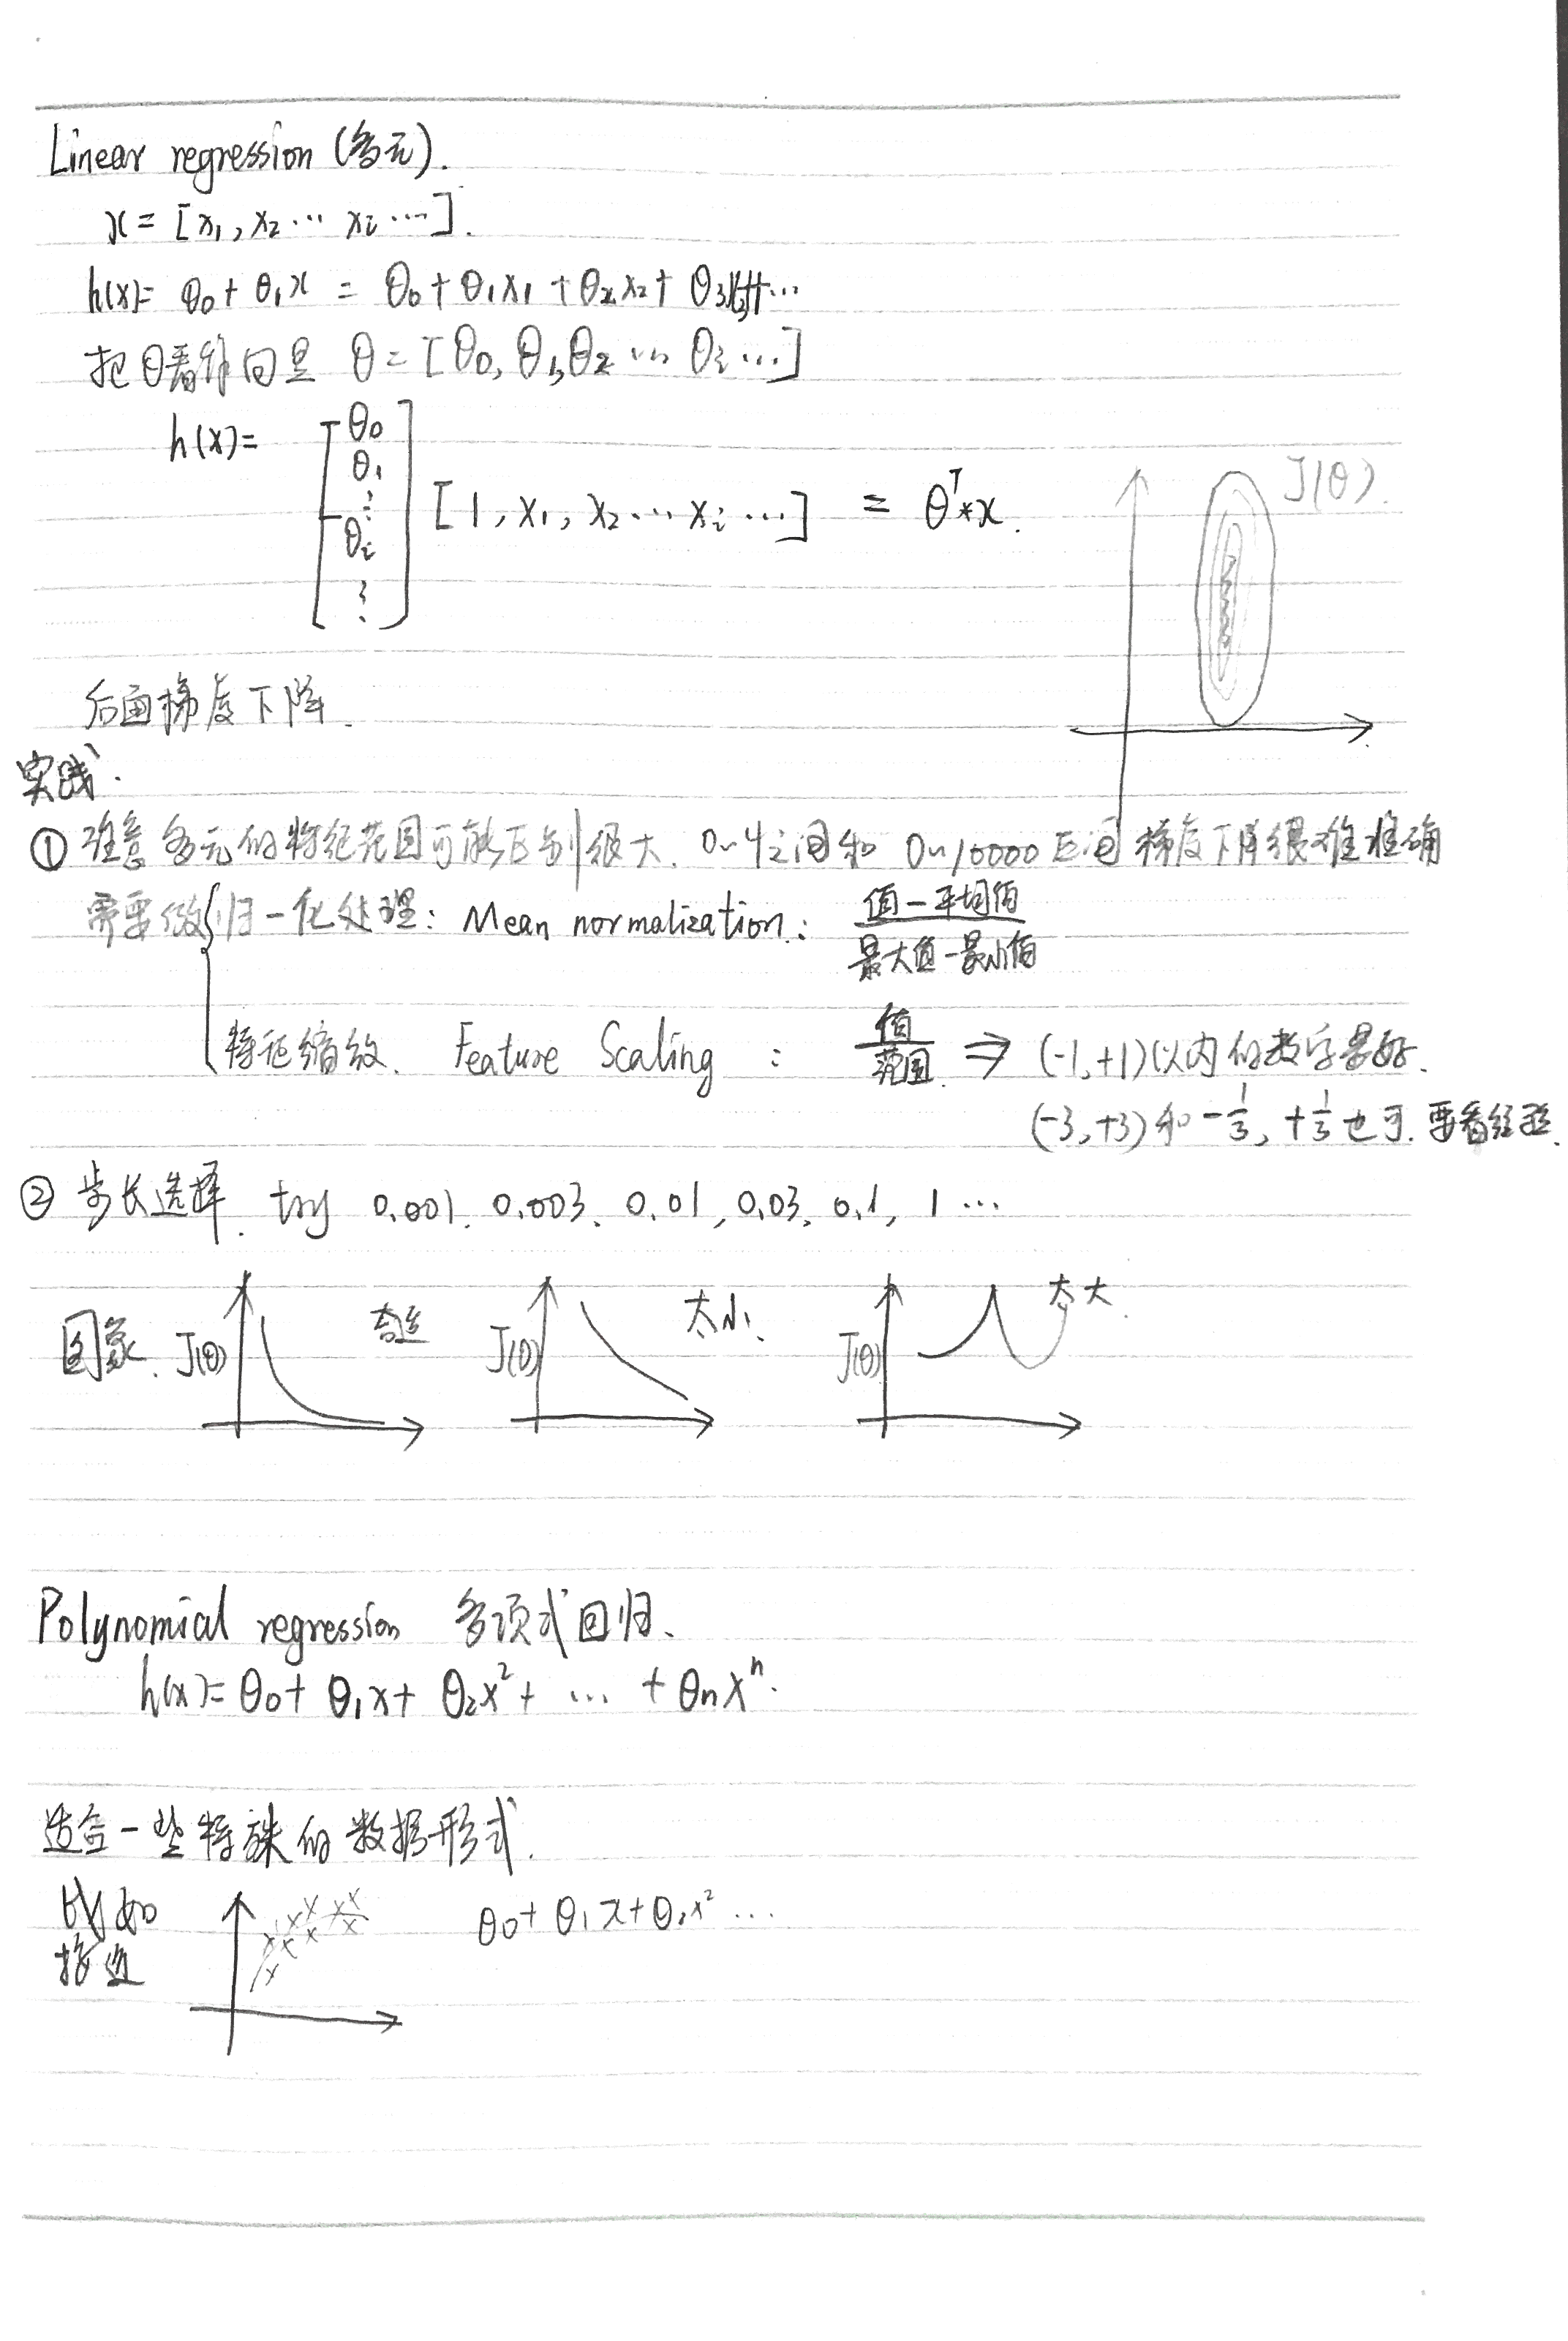 Linear regression (多元).
x = [x₁, x₂ ... xᵢ ...].
h(x) = θ₀ + θ₁x = θ₀ + θ₁x₁ + θ₂x₂ + θ₃x₃+...
把θ看作向量 θ = [θ₀, θ₁, θ₂ ... θᵢ ...]
h(x) = [θ₀ θ₁ ⋮ θᵢ ⋮] [1, x₁, x₂ ... xᵢ ...] = θᵀ*x.
J(θ).
后面梯度下降.
实践.
① 注意多元的特征范围可能区别很大. 0~4之间和 0~10000区间 梯度下降很难准确
需要做{归一化处理: Mean normalization: 值-平均值 / 最大值-最小值
特征缩放. Feature Scaling : 值 / 范围 ⇒ (-1,+1)以内的数字最好.
(-3,+3)和 -1/3, +1/3 也可. 要看经验.
② 步长选择. try 0.001. 0.003. 0.01, 0.03. 0.1, 1 ...
图象. J(θ) 合适 J(θ) 太小. J(θ) 太大.
Polynomial regression 多项式回归.
h(x) = θ₀ + θ₁x + θ₂x² + ... + θₙxⁿ.
适合一些特殊的数据形式.
比如 θ₀ + θ₁x + θ₂x² ...
接近